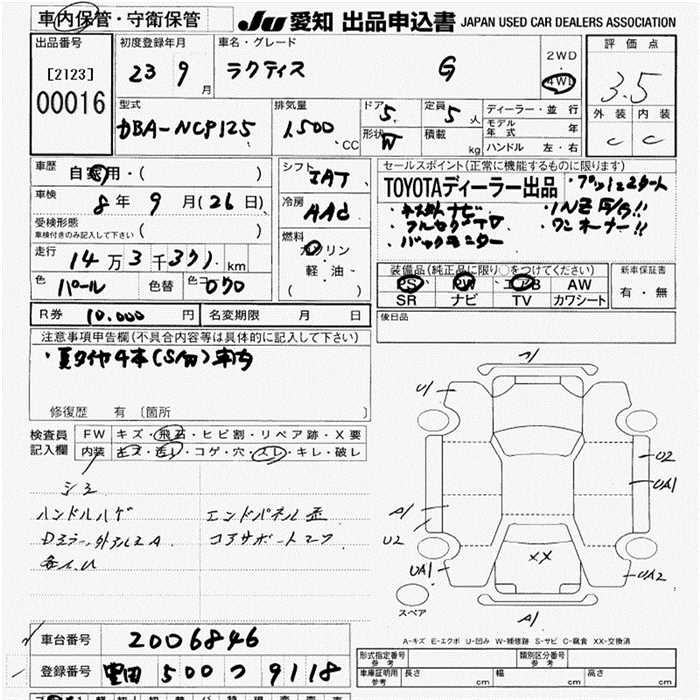 車内保管・守衛保管
JU 愛知 出品申込書 JAPAN USED CAR DEALERS ASSOCIATION
出品番号
[2123]
00016
初度登録年月
23 9 月
車名・グレード
ラクティス G
2WD
4WD
評価点
3.5
外装 内装
C C
型式
DBA-NCP125
排気量
1500 CC
ドア 5
形状 W
定員 5 人
積載 kg
ディーラー・並行
モデル年式 年
ハンドル 左・右
車歴
自家用・( )
車検
8年 9月(26日)
受検形態
車検付きのみ記入して下さい ( )
走行
14万3千371 km
色 パール 色替 色コード 070
シフト
IAT
冷房
AAC
燃料
ガソリン
軽油・
( )
セールスポイント(正常に機能するものに限ります)
TOYOTAディーラー出品 ・プッシュスタート
・ナビ
・フルセグTV ・ワンオーナー!!
・バックモニター
装備品(純正品に限り○をつけてください)
PS PW エアB AW
SR ナビ TV カワシート
新車保証書
有・無
後日品
R券 10.000 円 名変期限 月 日
注意事項申告欄(不具合内容等は具体的に記入して下さい)
・夏タイヤ4本(S/W)車内
修復歴 有 〔箇所 〕
検査員記入欄
FW キズ・飛石・ヒビ割・リペア跡・X要
内装 キズ・汚レ・コゲ・穴・スレ・キレ・破レ
シミ
ハンドルハゲ
Dミラー外
エンドパネル歪
コアサポート
A1
U1
U2
UA1
A1
U2
UA1
XX
UA2
A1
スペア
A-キズ E-エクボ U-凹み W-補修跡 S-サビ C-腐食 XX-交換済
車台番号 2006846
登録番号 豊田 500 つ 9118
形式指定番号 参考
類別区分番号 参考
車庫証明用 参考
長さ cm 幅 cm 高さ cm